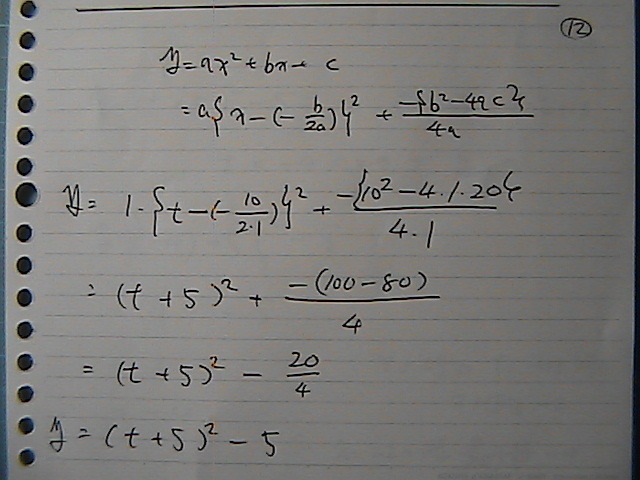 ⑫
y = ax² + bx + c
= a{x - (- b/2a)}² + -{b² - 4ac}/4a
y = 1・{t - (- 10/2・1)}² + -{10² - 4・1・20}/4・1
= (t + 5)² + -(100 - 80)/4
= (t + 5)² - 20/4
y = (t + 5)² - 5